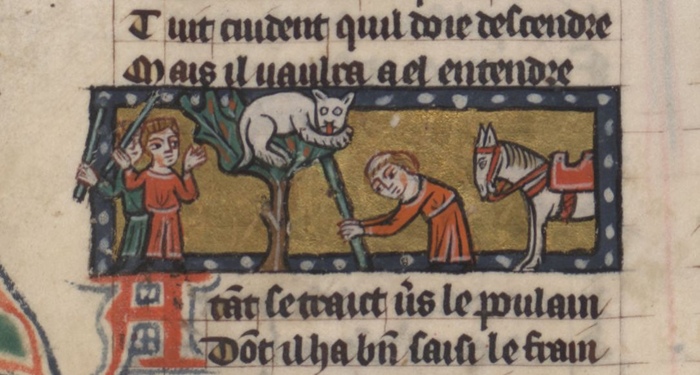 Tuit cuident quil doie descendre
Mais il uaulra a el entendre
Atāt se traict ūs le poulain
Dōt il ha bn̄ saisi le frain